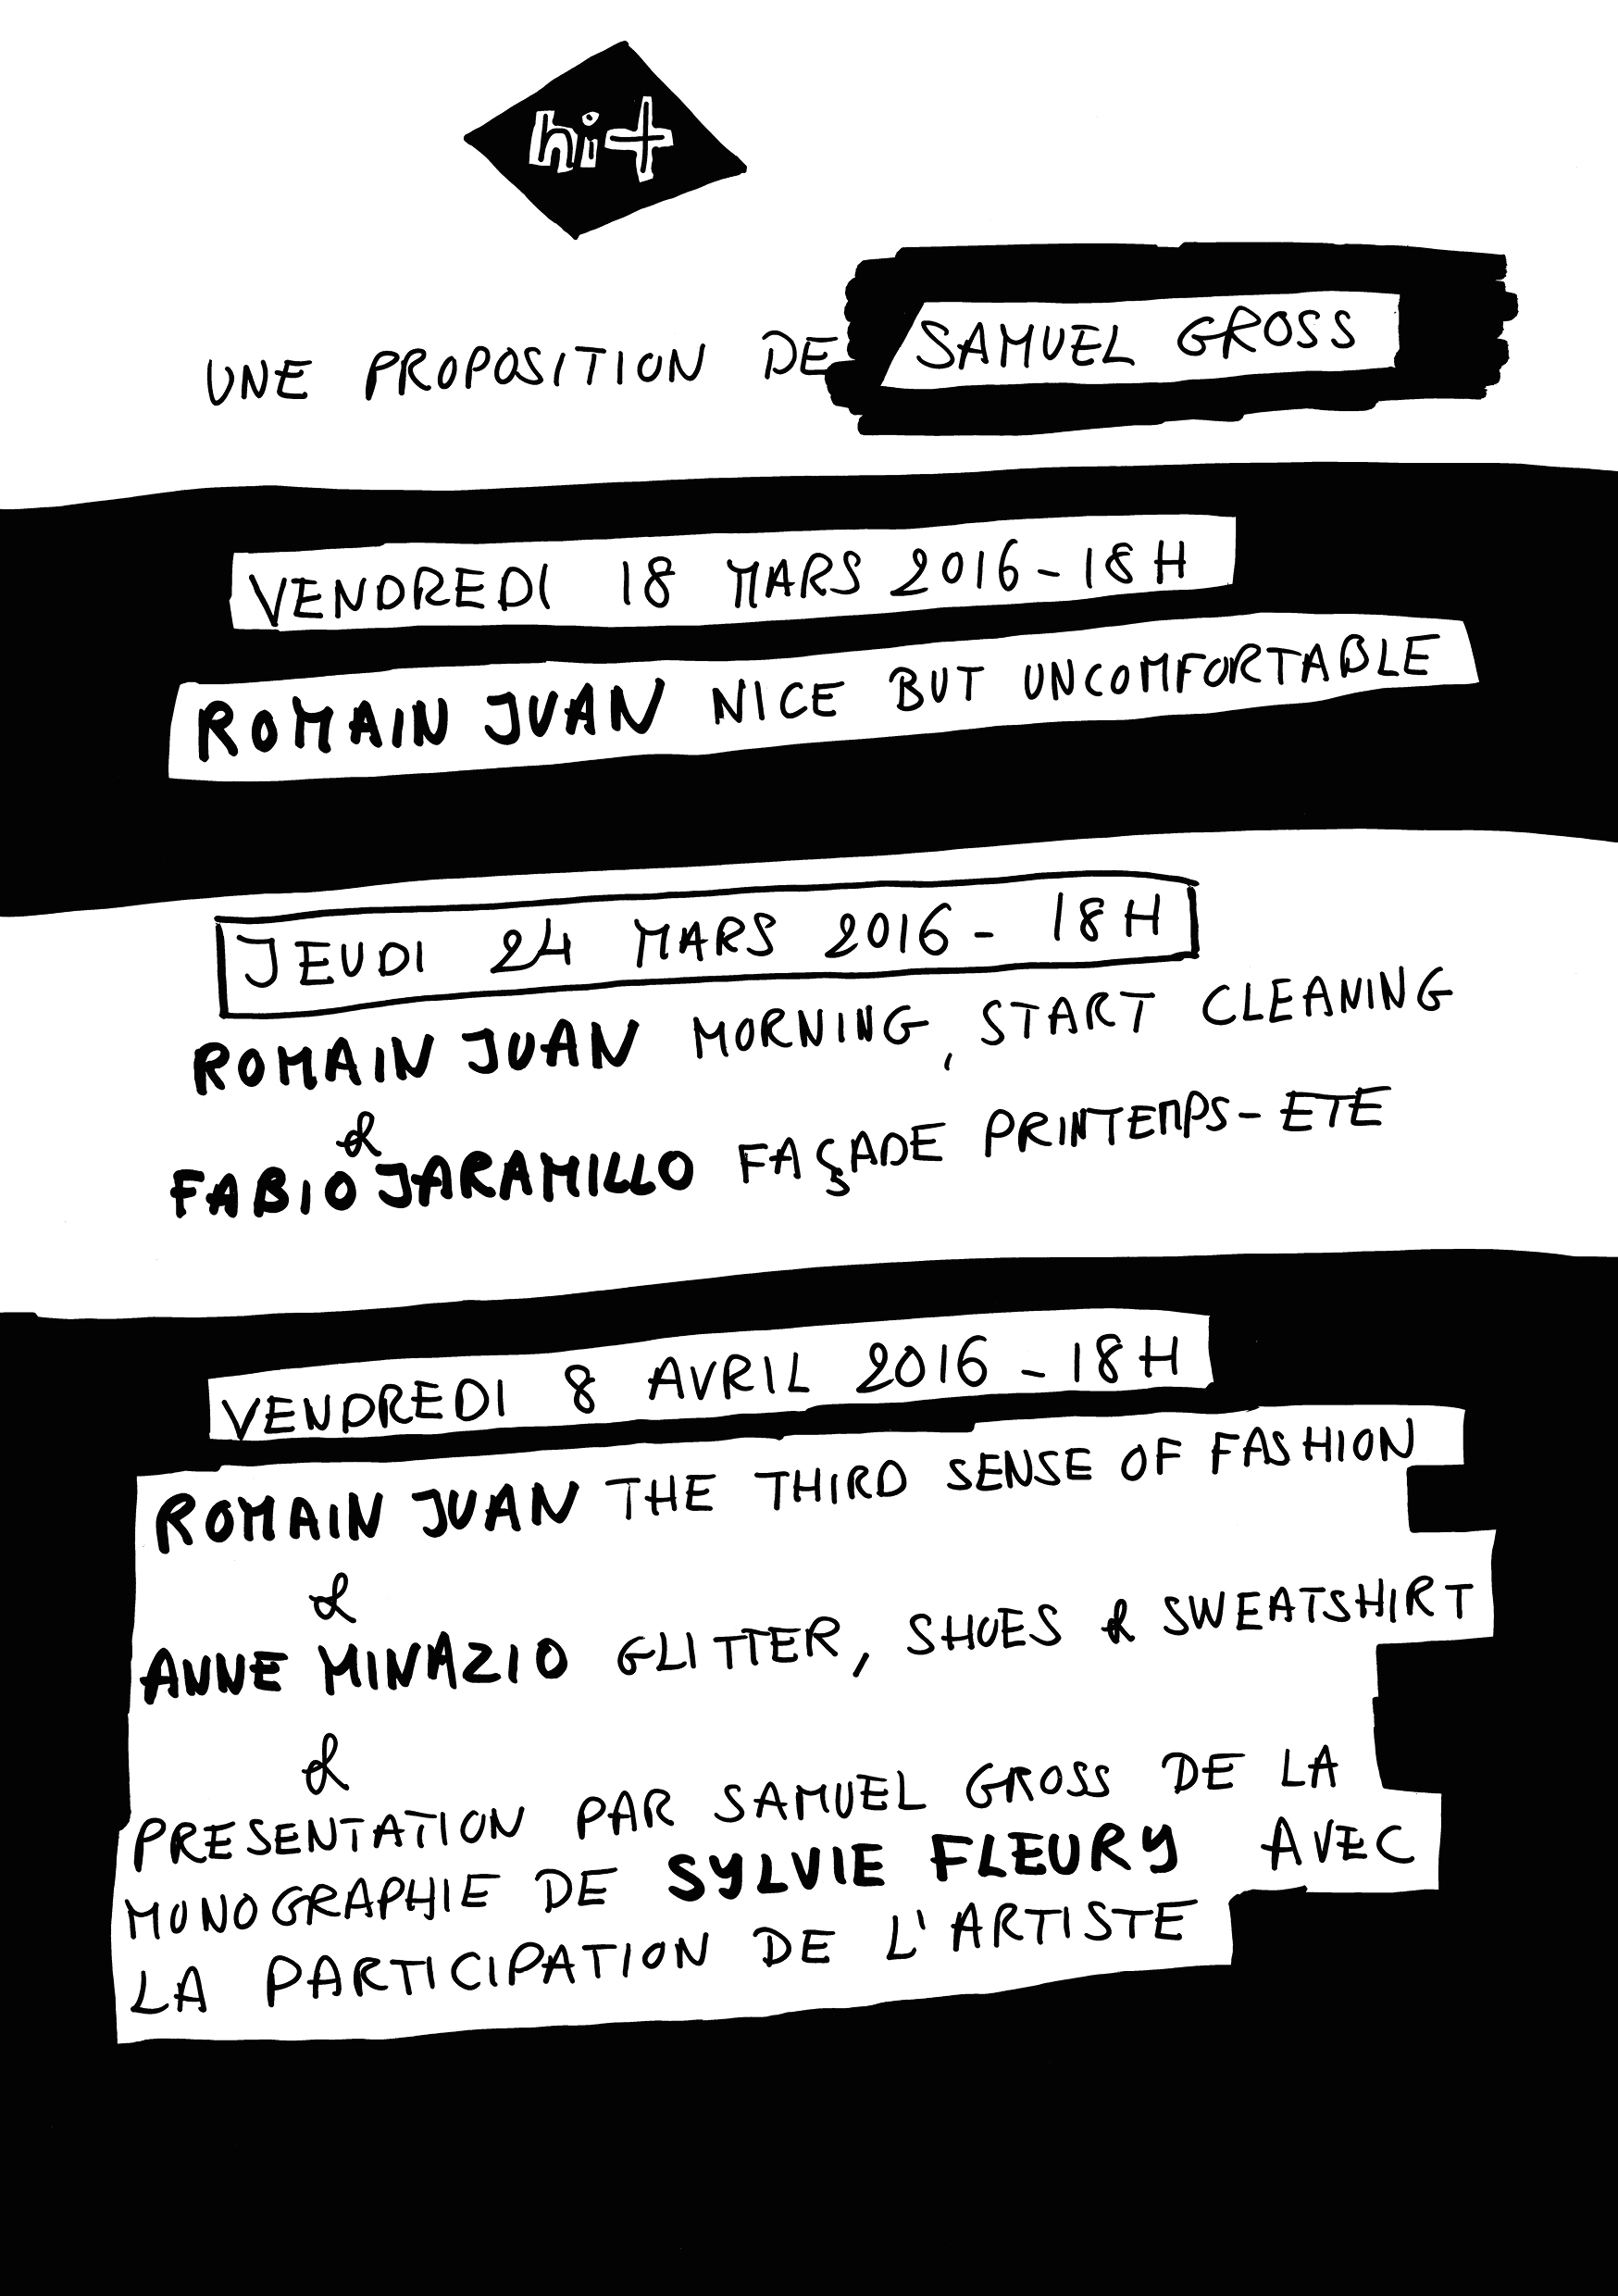 hit
UNE PROPOSITION DE SAMUEL GROSS
VENDREDI 18 MARS 2016 - 18H
ROMAIN JUAN NICE BUT UNCOMFORTABLE
JEUDI 24 MARS 2016 - 18H
ROMAIN JUAN MORNING, START CLEANING
&
FABIO JARAMILLO FAÇADE PRINTEMPS-ETE
VENDREDI 8 AVRIL 2016 - 18H
ROMAIN JUAN THE THIRD SENSE OF FASHION
&
ANNE MINAZIO GLITTER, SHOES & SWEATSHIRT
&
PRESENTATION PAR SAMUEL GROSS DE LA
MONOGRAPHIE DE SYLVIE FLEURY AVEC
LA PARTICIPATION DE L'ARTISTE